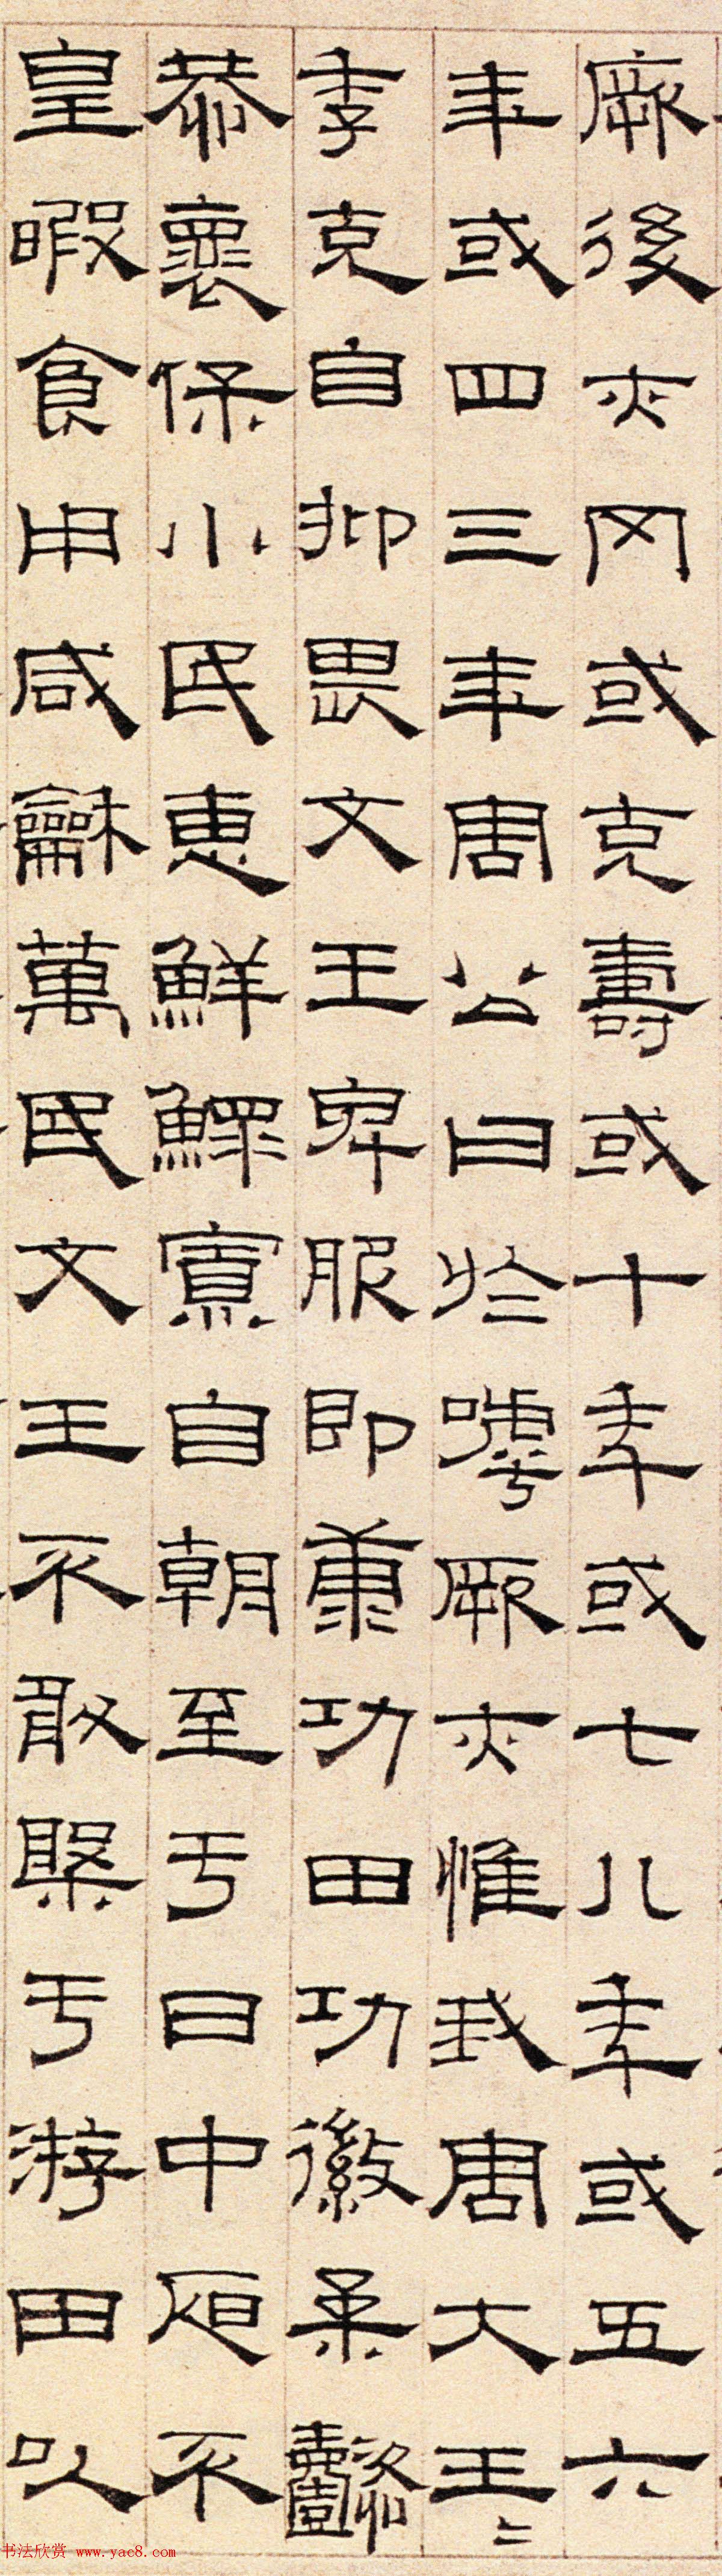 厥後亦罔或克壽或十年或七八年或五六
年或四三年周公曰於嘑厥亦惟我周大王〻
季克自抑畏文王卑服即康功田功徽柔懿
恭褱保小民惠鮮鰥寡自朝至于日中昃不
皇暇食用咸龢萬民文王不敢槃于游田以
书法欣赏 www.yac8.com